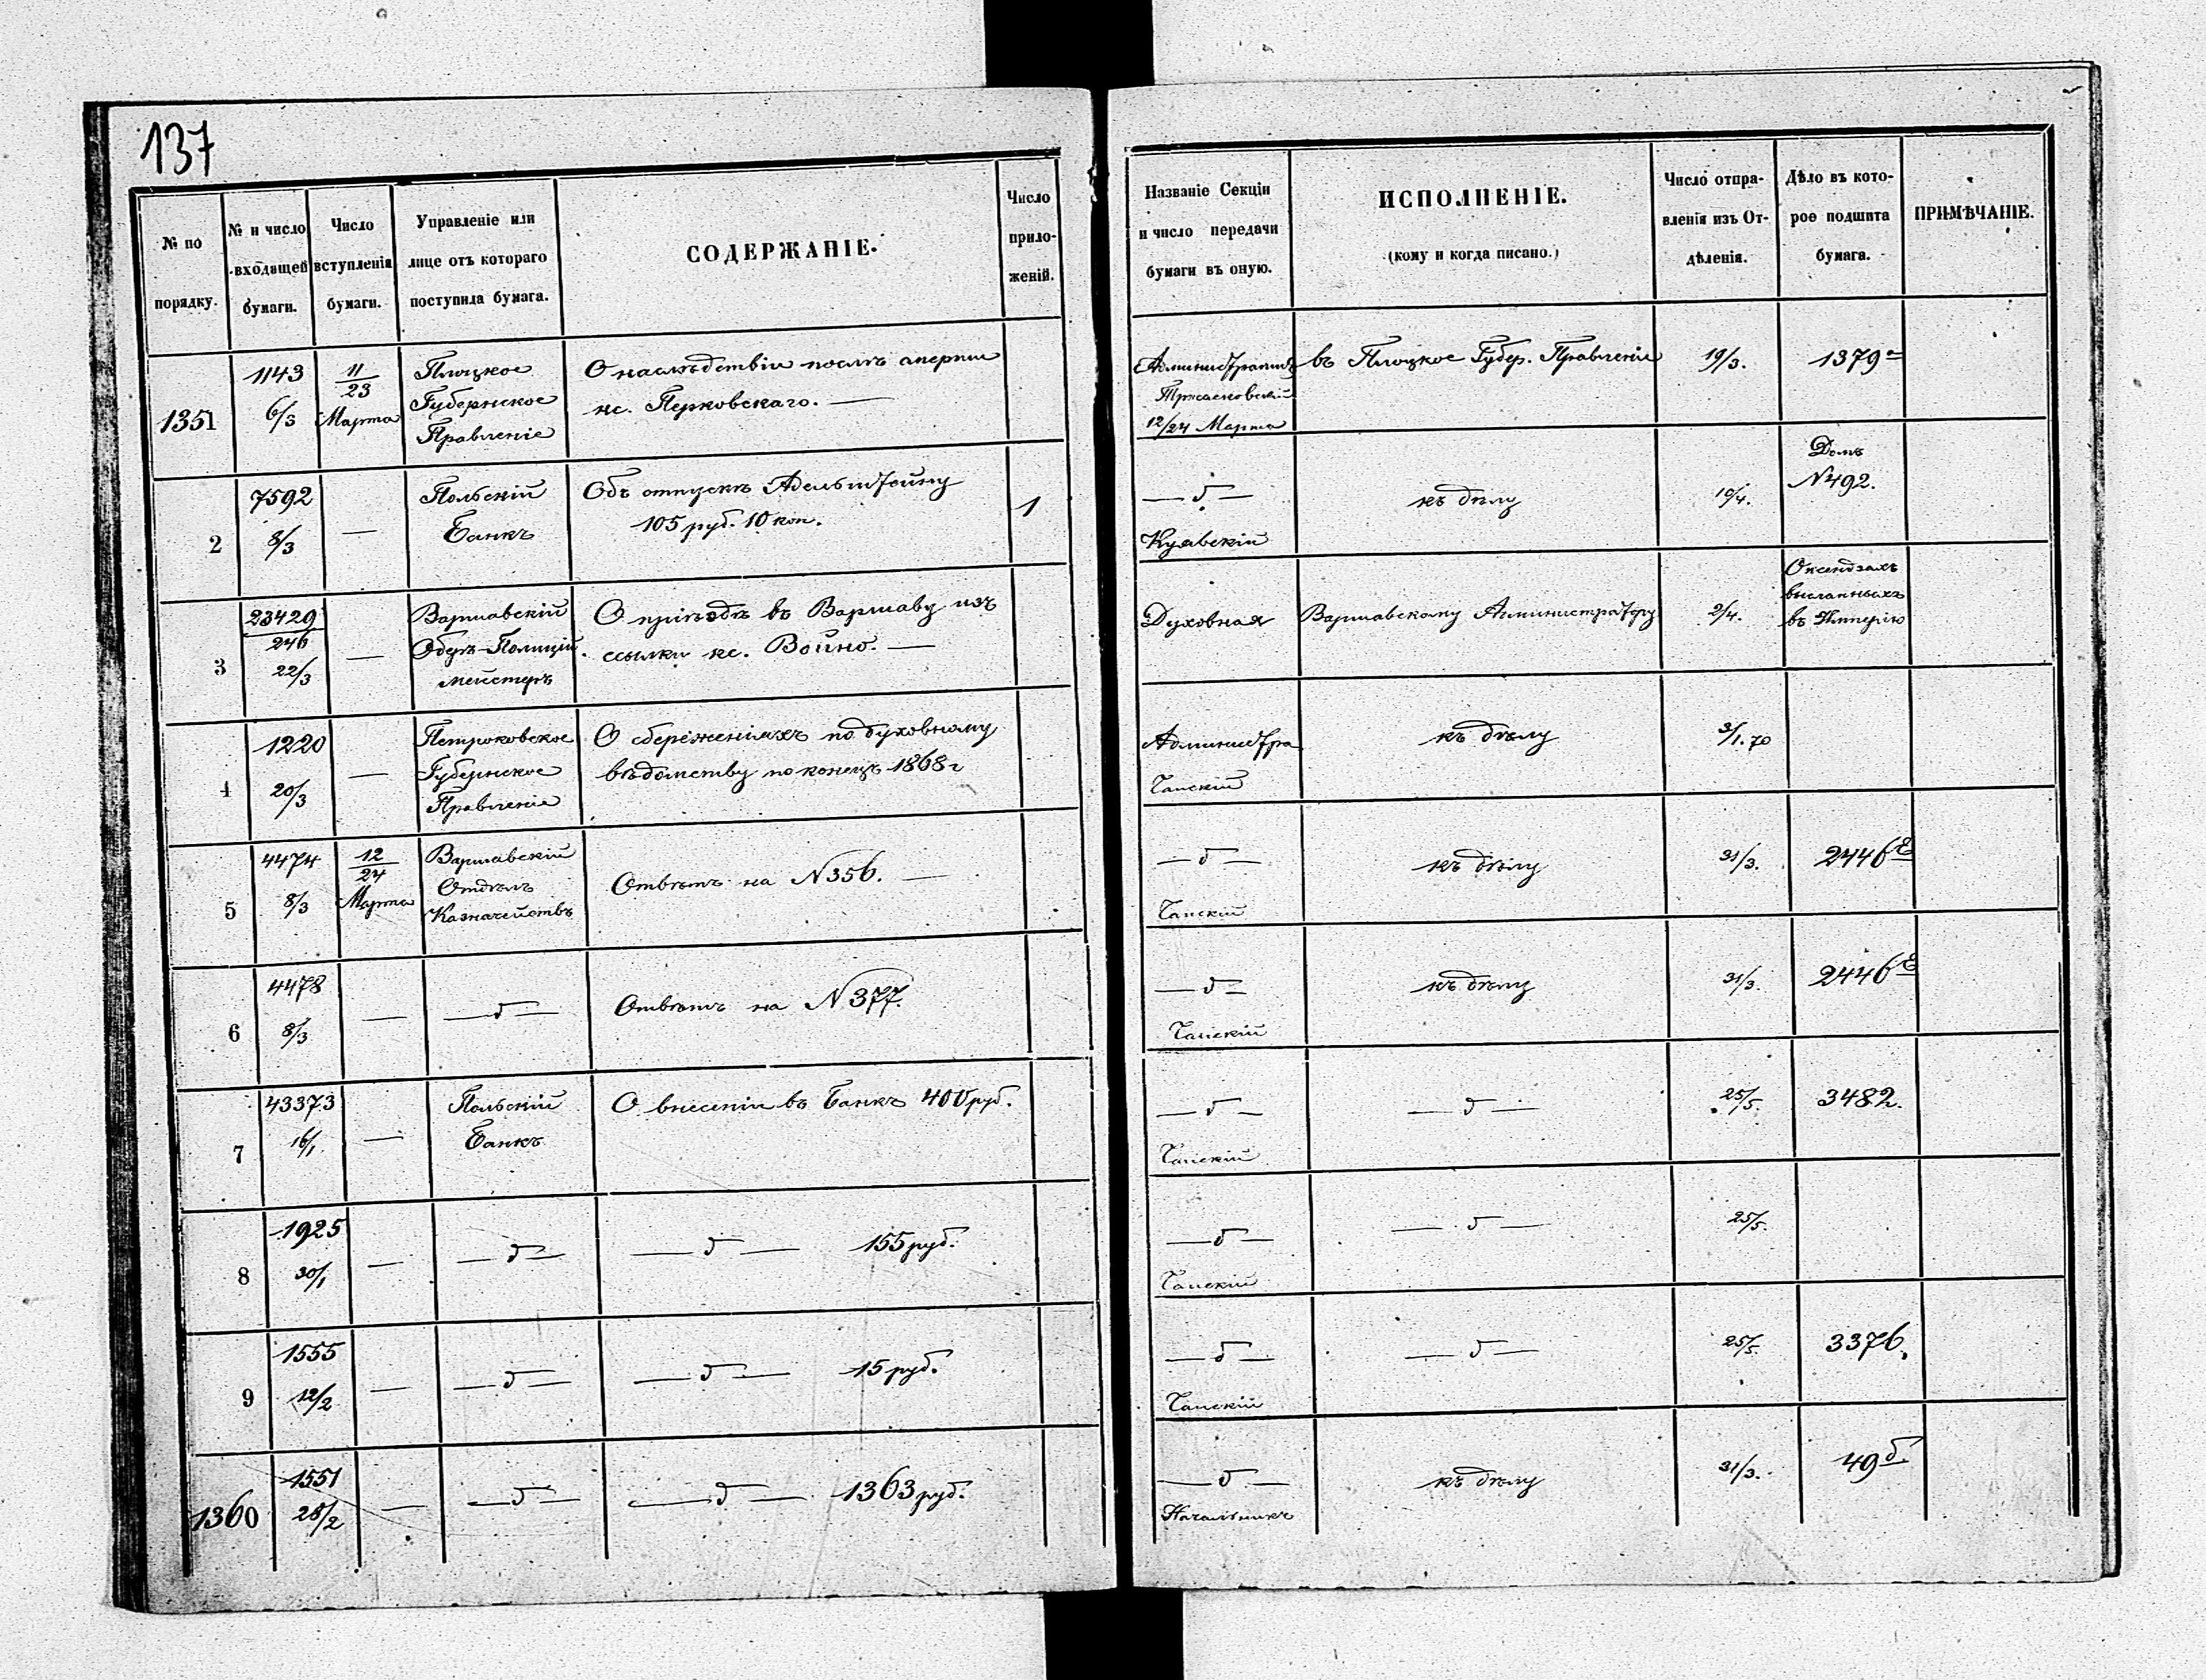 137
№ по порядку.
№ и число входящей бумаги.
Число вступленія бумаги.
Управленіе или лице отъ котораго поступила бумага.
СОДЕРЖАНІЕ.
Число приложеній.
Названіе Секціи и число передачи бумаги въ оную.
ИСПОЛНЕНІЕ.
(кому и когда писано.)
Число отправленія изъ Отдѣленія.
Дѣло въ которое подшита бумага.
ПРИМѢЧАНІЕ.
1351
1143
6/3
11/23
Марта
Плоцкое
Губернское
Правленіе
О наслѣдствіи послѣ смерти
кс. Перковскаго. —
12/24 Марта
въ Плоцкое Губер. Правленіе
19/3.
1379а
2
7592
8/3
—
Польскій
Банкъ
Объ отпускѣ
105 руб. 10 коп.
1
— δ —
Куявскій
къ дѣлу
10/4.
Домъ
№ 492.
3
23429
246
22/3
—
Варшавскій
Оберъ-Полицій-
мейстеръ
О пріѣздѣ въ Варшаву изъ
ссылки кс. Войно. —
Духовная
Варшавскому Администратору
2/4.
О ксендзахъ
высланныхъ
въ Имперію
4
1220
20/3
—
Петроковское
Губернское
Правленіе
О сбереженіяхъ по духовному
вѣдомству по конецъ 1868 г
Администра
къ дѣлу
3/1.70
5
4474
8/3
12/24
Марта
Варшавскій
Отдѣлъ
Казначействъ
Отвѣтъ на № 356. —
— δ —
къ дѣлу
31/3.
2446
6
4478
8/3
—
— δ —
Отвѣтъ на № 377.
— δ —
къ дѣлу
31/3.
2446
7
43373
16/1
—
Польскій
Банкъ
О внесеніи въ Банкъ 400 руб.
— δ —
— δ —
25/5.
3482.
8
1925
30/1
—
— δ —
— δ — 155 руб.
— δ —
— δ —
25/5.
9
1555
12/2
—
— δ —
— δ — 15 руб.
— δ —
— δ —
25/5.
3376.
1360
1551
28/2
—
— δ —
— δ — 1363 руб.
— δ —
Начальникъ
къ дѣлу
31/3.
49б